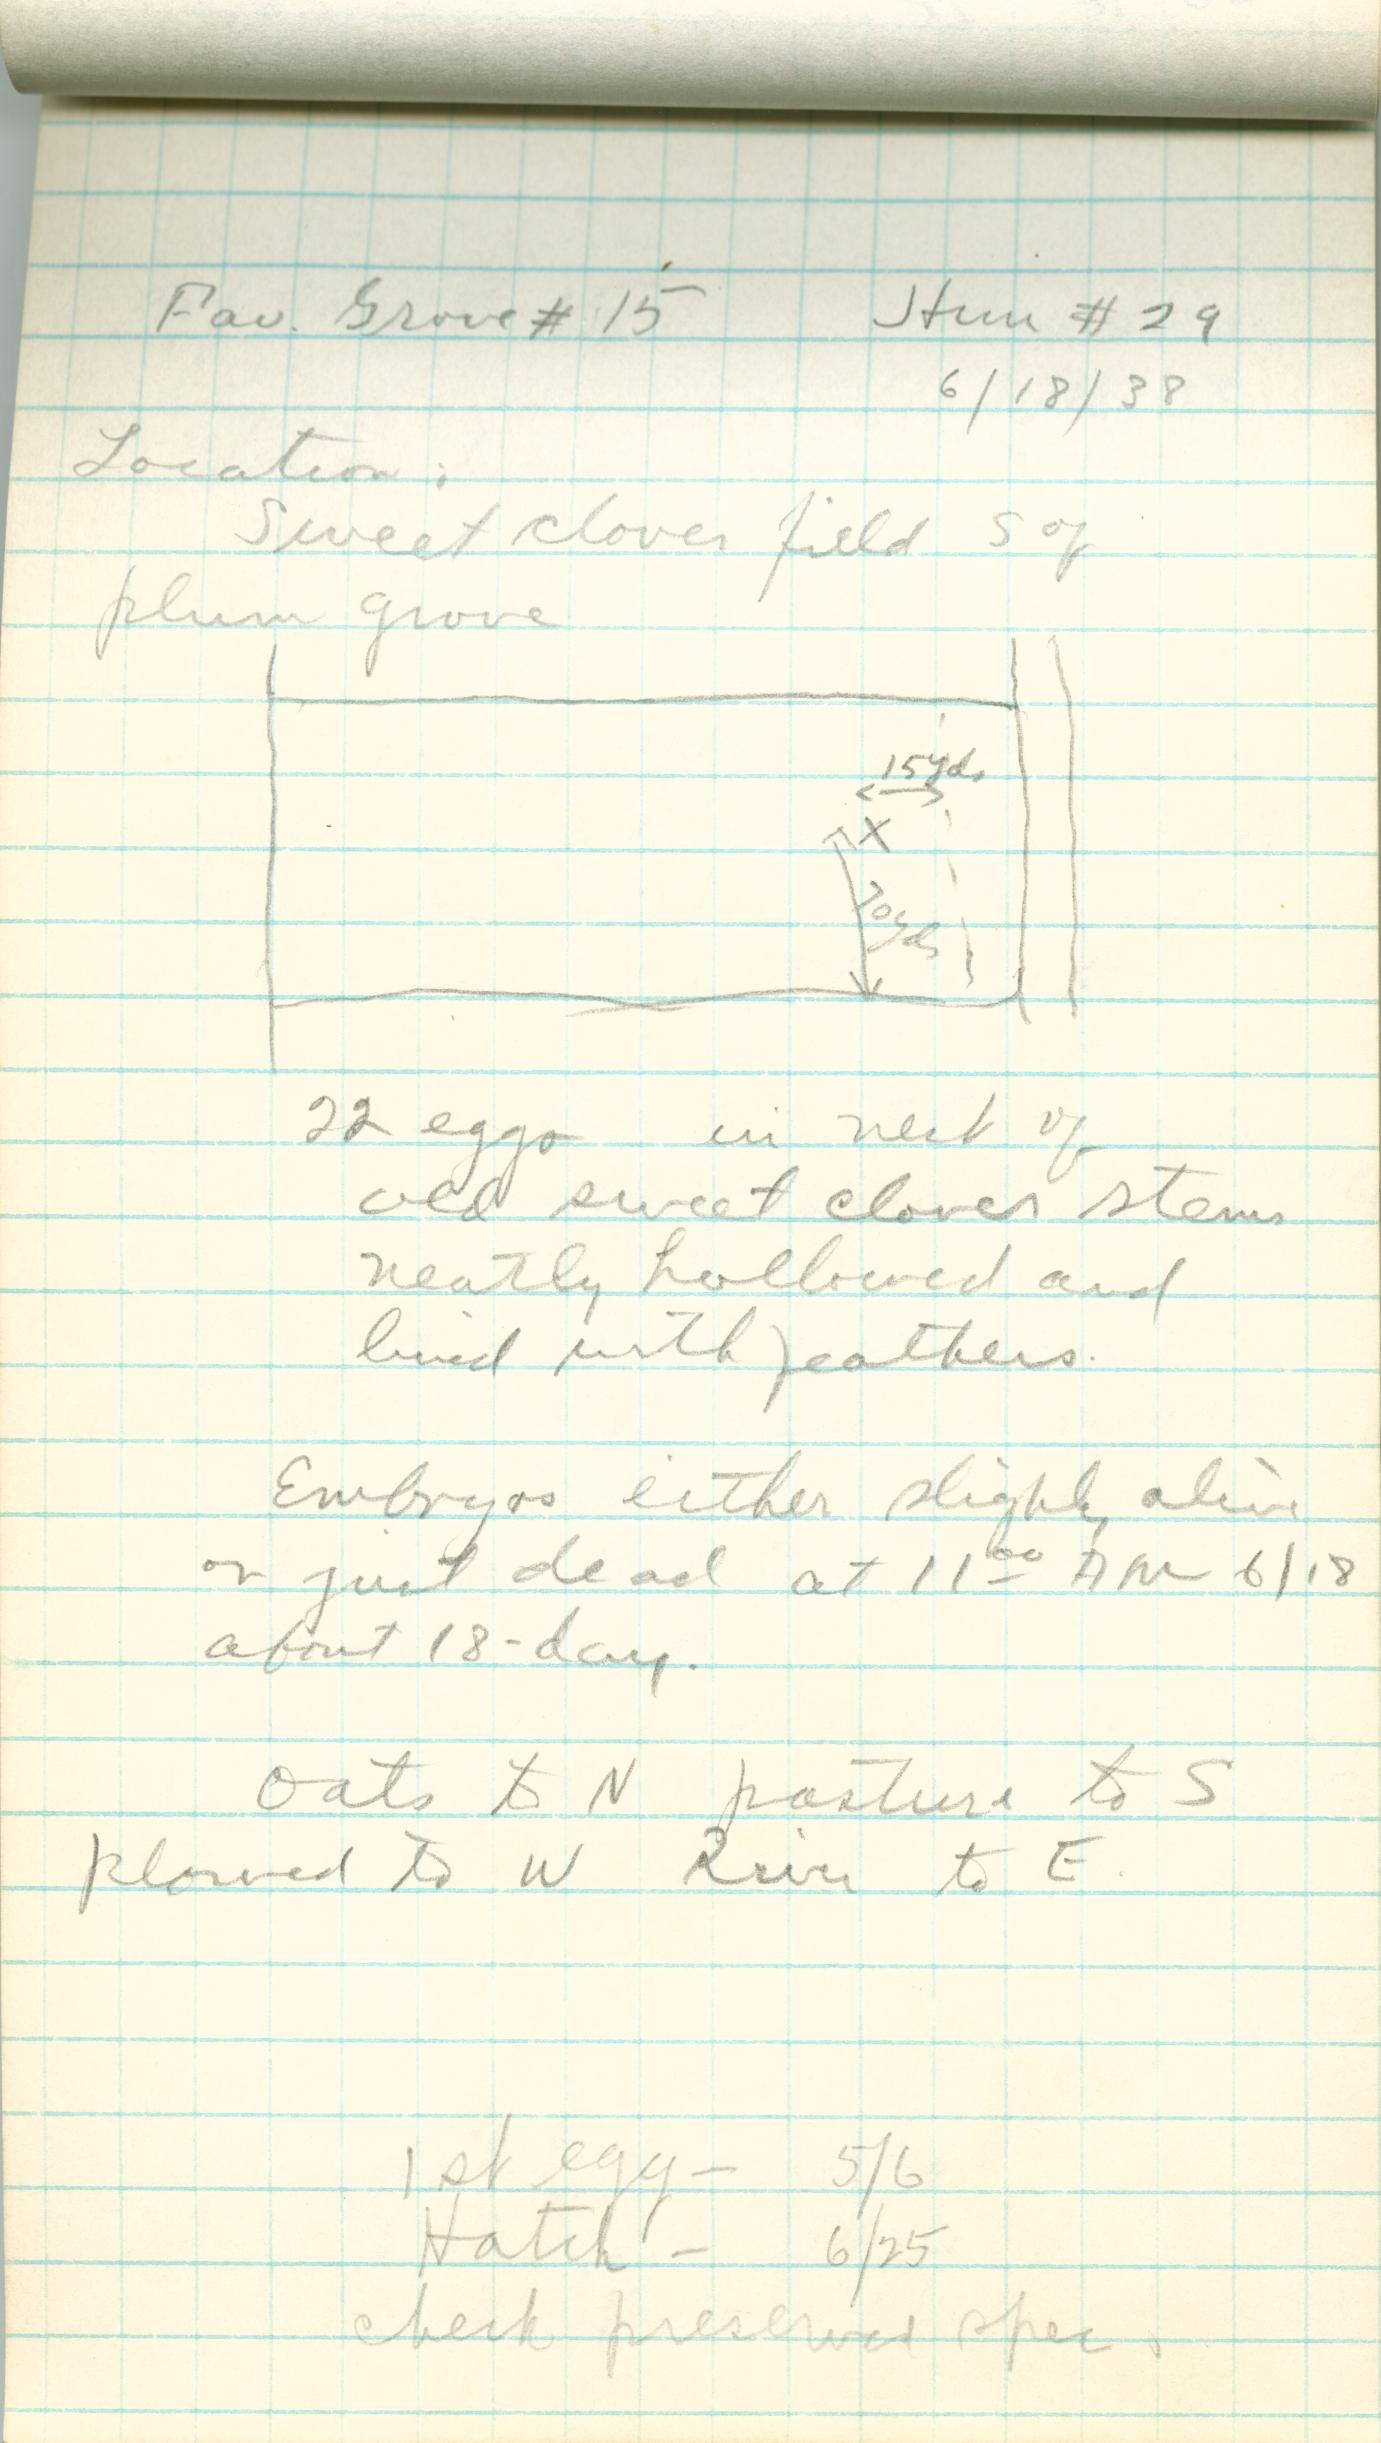 Fav. Grove # 15 Hun # 29
6/18/38
Location:
Sweet clover field S of
plum grove
15 yds
X
70 yds
22 eggs in nest of
old sweet clover stems
neatly hollowed and
lined with feathers.
Embryos either slightly alive
or just dead at 11 00 AM 6/18
about 18-day.
Oats to N pasture to S
plowed to W River to E.
1st egg - 5/6
Hatch - 6/25
check preserved spec.